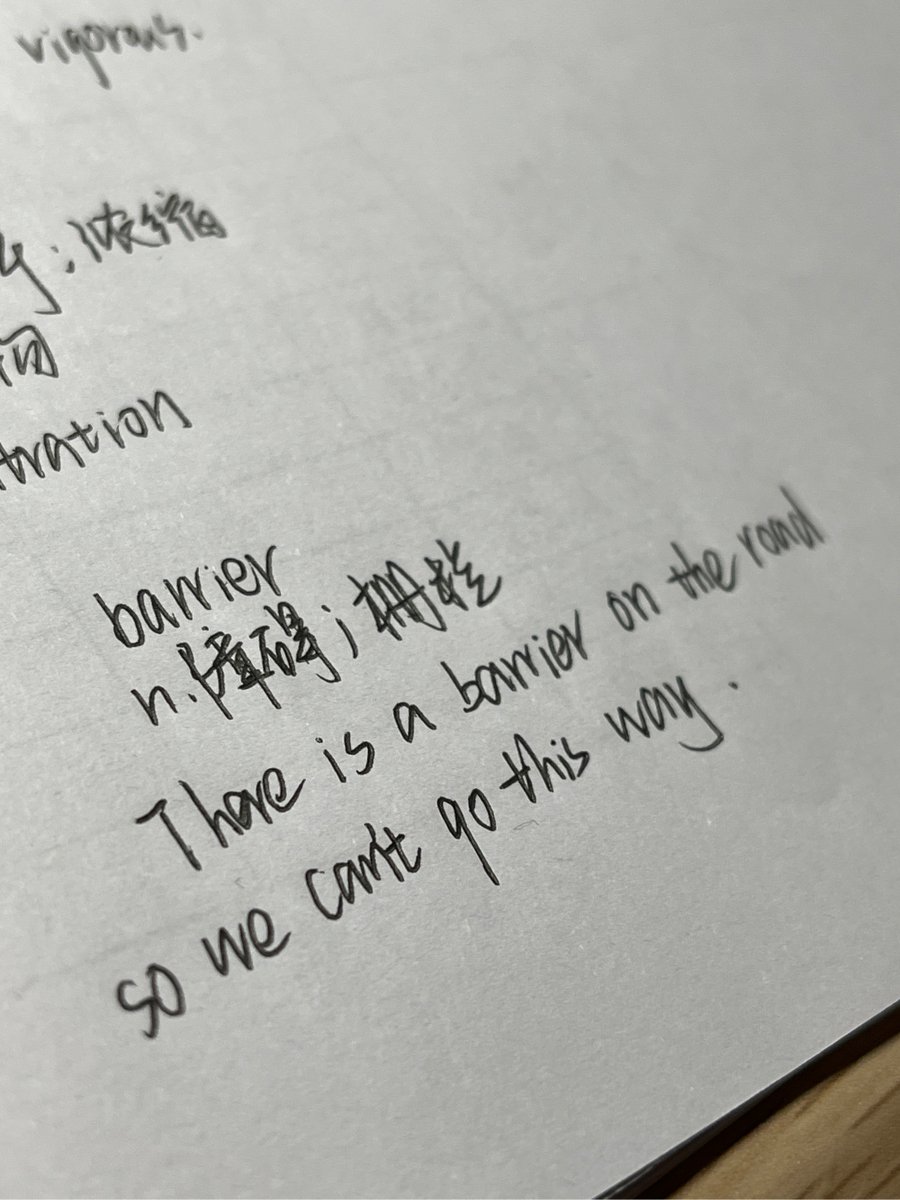 vigorous.
;浓缩
tration
barrier
n.障碍;栅栏
There is a barrier on the road
so we can't go this way.